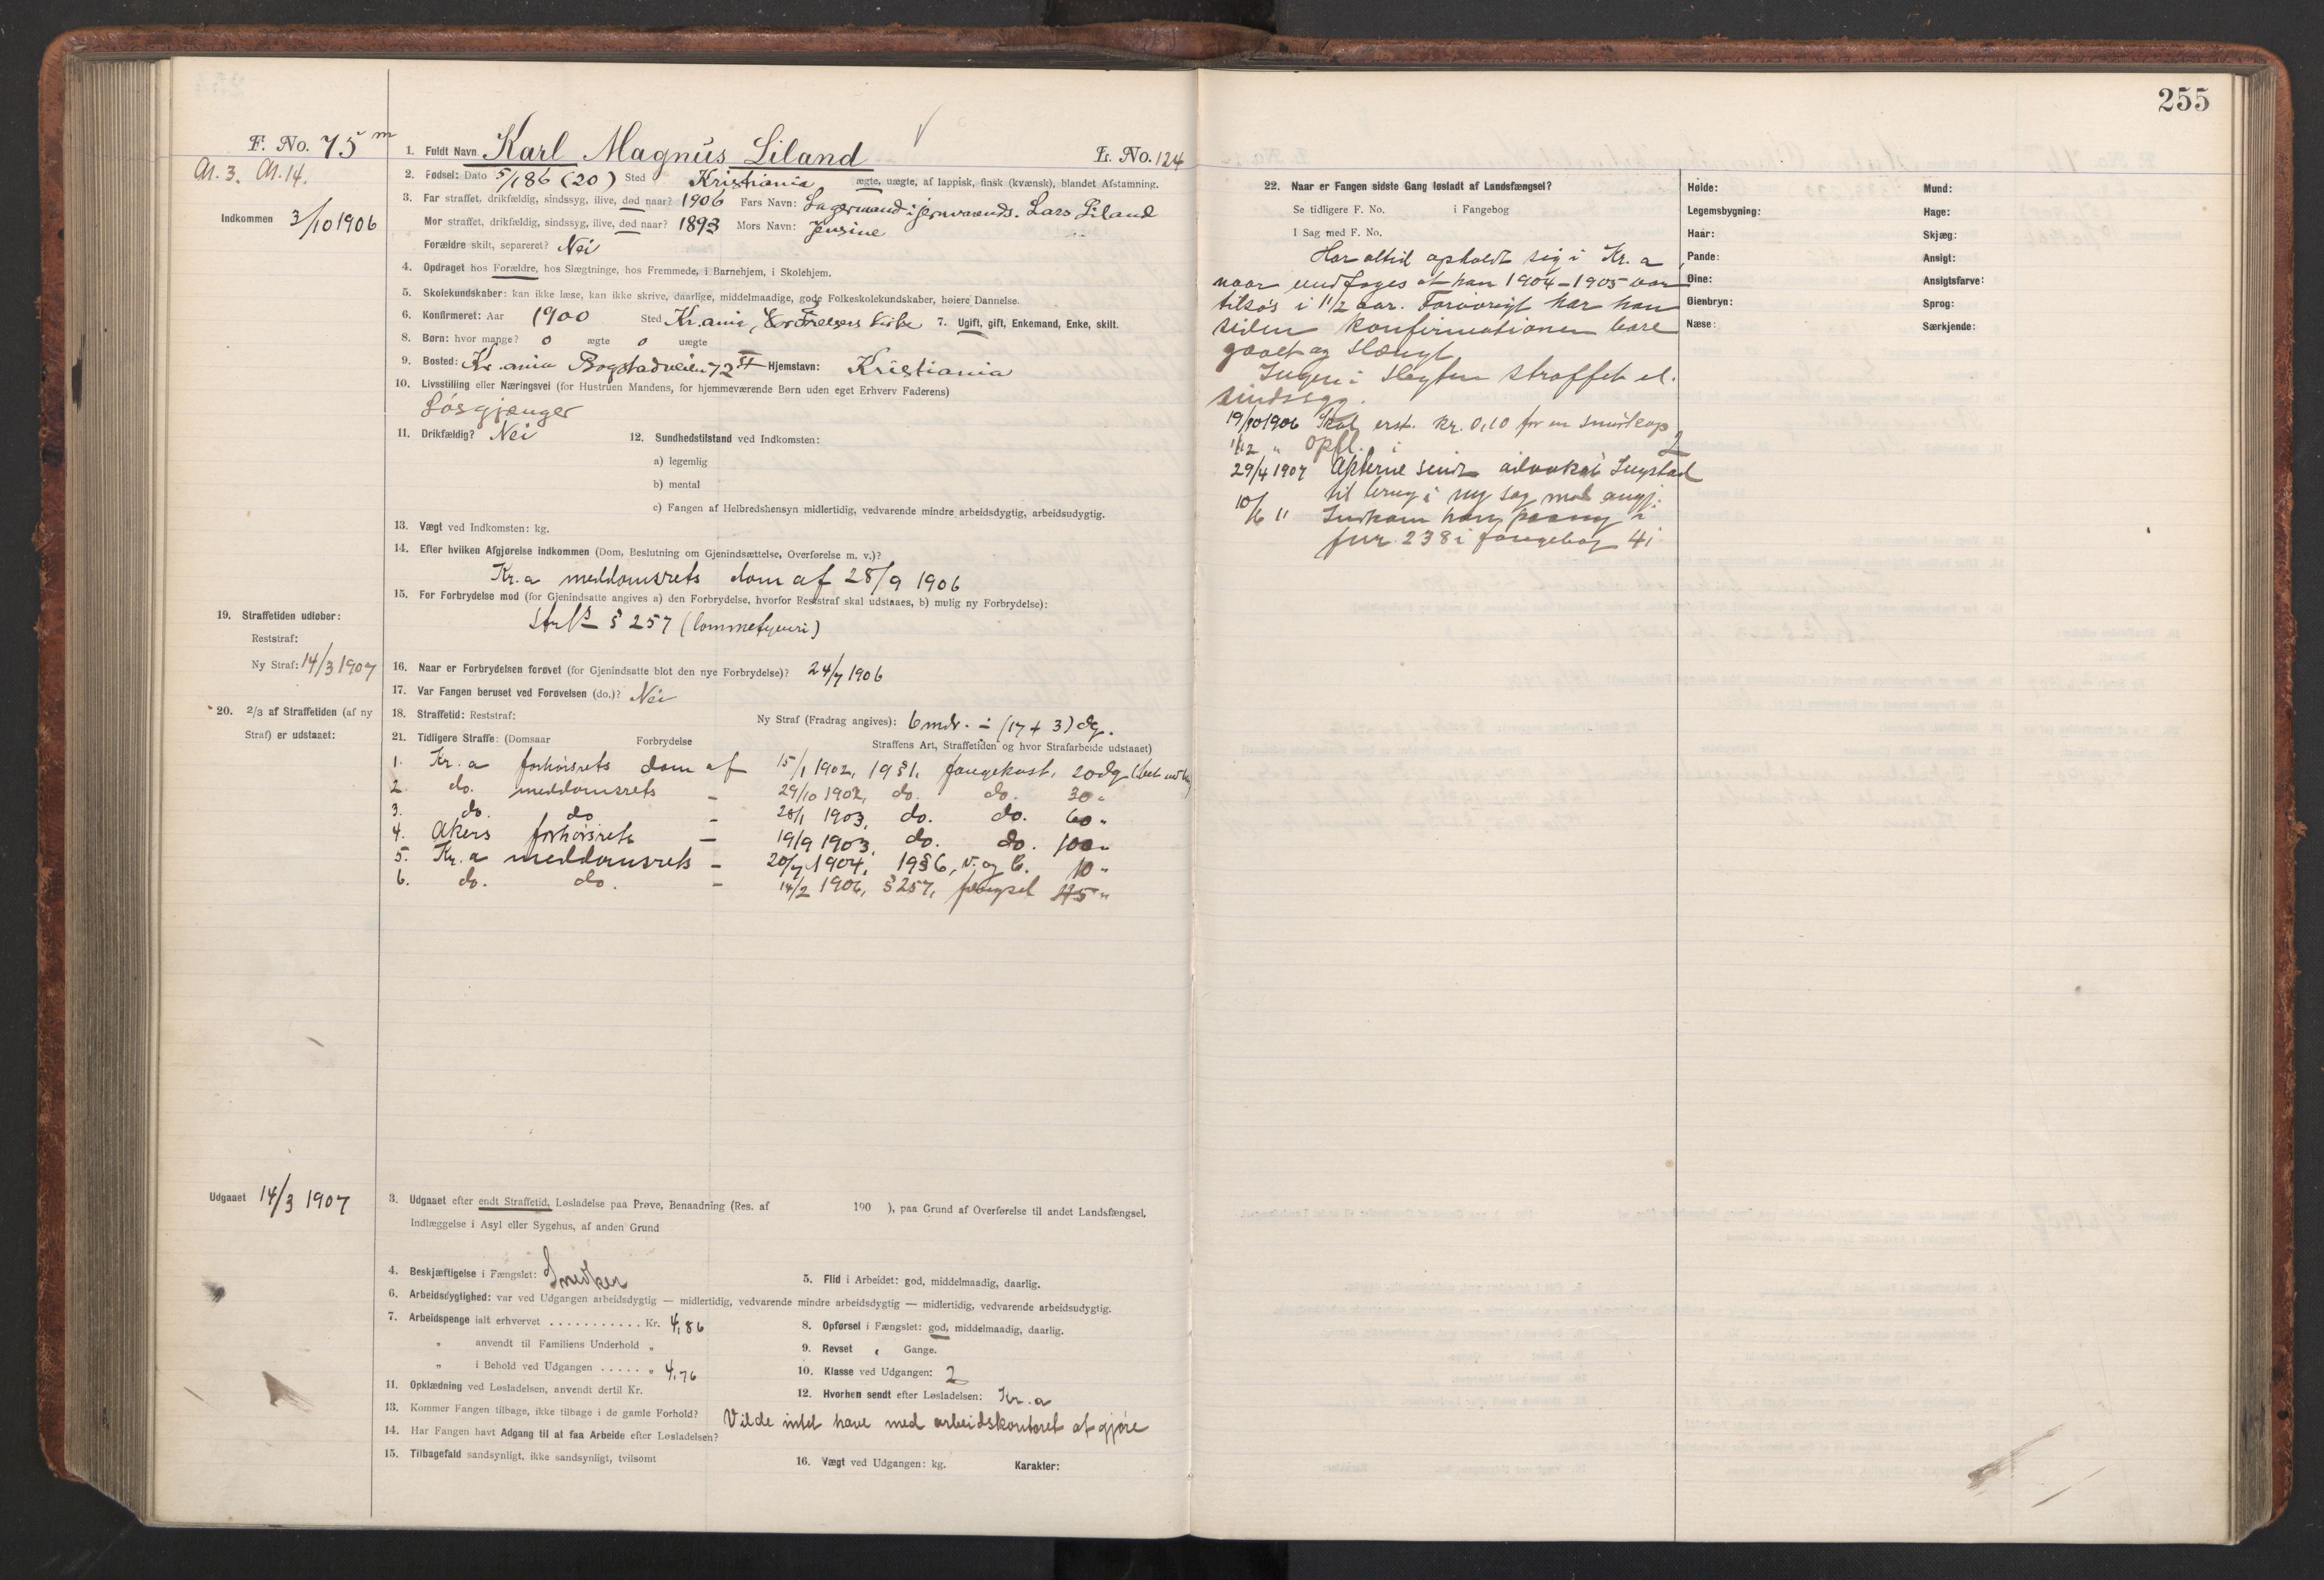 255
F. No. 75 m
Al. 3. Al. 14.
Indkommen 3/10 1906
1. Fuldt Navn Karl Magnus Liland L. No. 124
2. Fødsel: Dato 5/1 86 (20) Sted Kristiania ægte, uægte, af lappisk, finsk (kvænsk), blandet Afstamning.
3. Far straffet, drikfældig, sindssyg, ilive, død naar? 1906 Fars Navn: Lagermand i jernvareund. Lars Liland
Mor straffet, drikfældig, sindssyg, ilive, død naar? 1893 Mors Navn: Jensine
Forældre skilt, separeret? Nei
4. Opdraget hos Forældre, hos Slægtninge, hos Fremmede, i Barnehjem, i Skolehjem.
5. Skolekundskaber: kan ikke læse, kan ikke skrive, daarlige, middelmaadige, gode Folkeskolekundskaber, høiere Dannelse.
6. Konfirmeret: Aar 1900 Sted Kr.ania, Vor Frelsers kirke 7. Ugift, gift, Enkemand, Enke, skilt.
8. Børn: hvor mange? 0 ægte 0 uægte
9. Bosted: Kr.ania Bogstadveien 72 II Hjemstavn: Kristiania
10. Livsstilling eller Næringsvei (for Hustruen Mandens, for hjemmeværende Børn uden eget Erhverv Faderens)
Løsgjænger
11. Drikfældig? Nei 12. Sundhedstilstand ved Indkomsten:
a) legemlig
b) mental
c) Fangen af Helbredshensyn midlertidig, vedvarende mindre arbeidsdygtig, arbeidsudygtig.
13. Vægt ved Indkomsten: kg.
14. Efter hvilken Afgjørelse indkommen (Dom, Beslutning om Gjenindsættelse, Overførelse m. v.)?
Kr.a meddomsrets dom af 28/9 1906
15. For Forbrydelse mod (for Gjenindsatte angives a) den Forbrydelse, hvorfor Reststraf skal udstaaes, b) mulig ny Forbrydelse):
§ 257 (lommetyveri)
19. Straffetiden udløber:
Reststraf:
Ny Straf: 14/3 1907
16. Naar er Forbrydelsen forøvet (for Gjenindsatte blot den nye Forbrydelse)? 24/7 1906
17. Var Fangen beruset ved Forøvelsen (do.)? Nei
20. 2/3 af Straffetiden (af ny
Straf) er udstaaet:
18. Straffetid: Reststraf: Ny Straf (Fradrag angives): 6 mdr. ÷ (17 + 3) dg.
21. Tidligere Straffe: (Domsaar Forbrydelse Straffens Art, Straffetiden og hvor Strafarbeide udstaaet)
1. Kr.a forhørsrets dom af 15/1 1902, 19 § 1, fangekost, 20 dg
2. do. meddomsrets – 29/10 1902, do. do. 30 "
3. do. do – 28/1 1903, do. do. 60 "
4. Akers forhørsrets – 19/9 1903, do. do. 100 "
5. Kr.a meddomsrets – 20/7 1904, 19 § 6, v. og b. 10 "
6. do. do. – 14/2 1906, § 257, fængsel 45 "
Udgaaet 14/3 1907
3. Udgaaet efter endt Straffetid, Løsladelse paa Prøve, Benaadning (Res. af 190 ), paa Grund af Overførelse til andet Landsfængsel,
Indlæggelse i Asyl eller Sygehus, af anden Grund
4. Beskjæftigelse i Fængslet: Snedker 5. Flid i Arbeidet: god, middelmaadig, daarlig.
6. Arbeidsdygtighed: var ved Udgangen arbeidsdygtig — midlertidig, vedvarende mindre arbeidsdygtig — midlertidig, vedvarende arbeidsudygtig.
7. Arbeidspenge ialt erhvervet . . . . . . . . . . . Kr. 4,86 8. Opførsel i Fængslet: god, middelmaadig, daarlig.
" anvendt til Familiens Underhold " 9. Revset Gange.
" i Behold ved Udgangen . . . . . " 4,76 10. Klasse ved Udgangen: 2
11. Opklædning ved Løsladelsen, anvendt dertil Kr. 12. Hvorhen sendt efter Løsladelsen: Kr.a
13. Kommer Fangen tilbage, ikke tilbage i de gamle Forhold? Vilde intet have med arbeidskontoret at gjøre
14. Har Fangen havt Adgang til at faa Arbeide efter Løsladelsen?
15. Tilbagefald sandsynligt, ikke sandsynligt, tvilsomt 16. Vægt ved Udgangen: kg. Karakter:
22. Naar er Fangen sidste Gang løsladt af Landsfængsel?
Se tidligere F. No. i Fangebog
I Sag med F. No.
Har altid opholdt sig i Kr.a
naar undtages at han 1904–1905 var
tilsøs i 1 1/2 aar. Forøvrigt har han
siden konfirmationen bare
gaaet og slængt.
Ingen i slegten straffet el.
sindssyg.
19/10 1906 Skal erst. kr. 0,10 for en
1/12 " opfl. i 2
29/4 1907 Akterne sendt advokat Ingstad
til brug i ny sag mod angj.
10/6 " Indkom han paany
fnr. 238 i fangebog 4
Høide:
Legemsbygning:
Haar:
Pande:
Øine:
Øienbryn:
Næse:
Mund:
Hage:
Skjæg:
Ansigt:
Ansigtsfarve:
Sprog:
Særkjende: